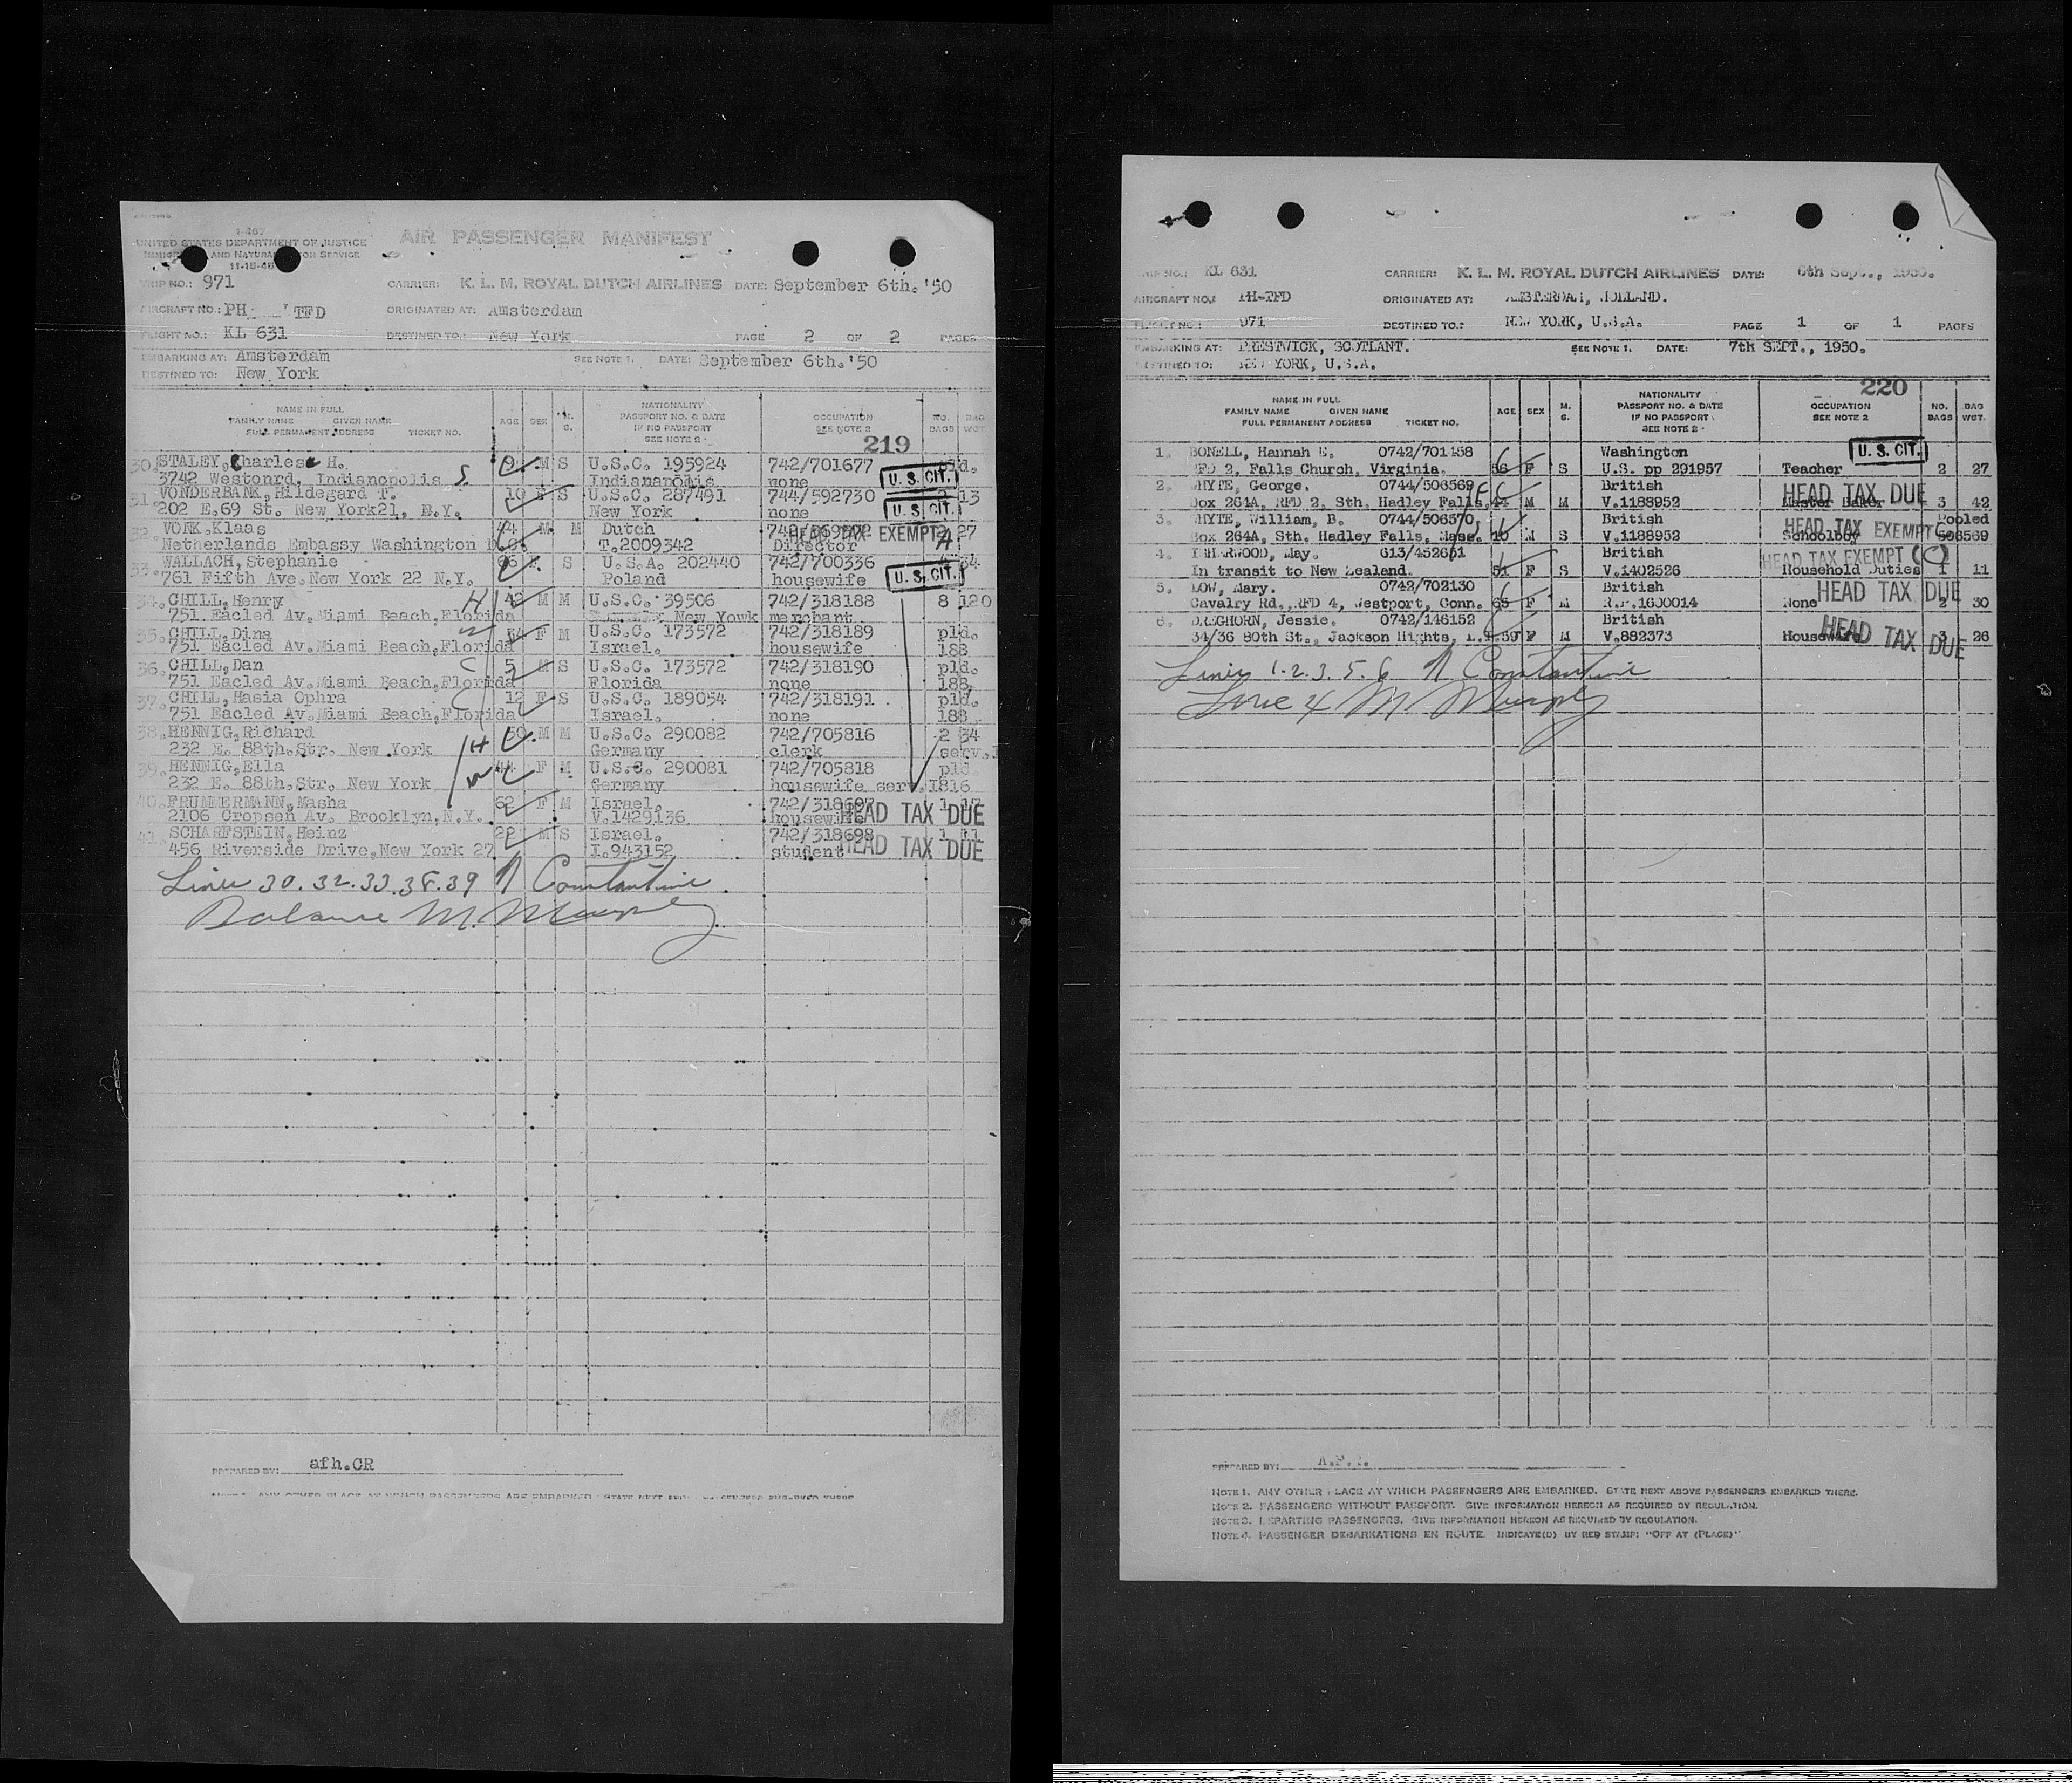 I-467
UNITED STATES DEPARTMENT OF JUSTICE
AND SERVICE
11-15-48
AIR PASSENGER MANIFEST
TRIP NO.: 971
CARRIER: K. L. M. ROYAL DUTCH AIRLINES DATE: September 6th.'50
AIRCRAFT NO.: PH TFD
ORIGINATED AT: Amsterdam
FLIGHT NO.: KL 631
DESTINED TO.: New York
PAGE 2 OF 2 PAGES
EMBARKING AT: Amsterdam
SEE NOTE 1. DATE: September 6th.'50
DESTINED TO: New York
NAME IN FULL
FAMILY NAME GIVEN NAME
FULL PERMANENT ADDRESS TICKET NO.
AGE SEX M. S.
NATIONALITY
PASSPORT NO. & DATE
IF NO PASSPORT
SEE NOTE 2
OCCUPATION
SEE NOTE 2
NO. BAGS
BAG WGT.
219
30. STALEY, Charles H. M S U.S.C. 195924 742/701677
3742 Westonrd, Indianopolis S. Indianapolis none U. S. CIT.
31. VONDERBANK, Hildegard T. 10 S U.S.C. 287491 744/592730 2 13
202 E.69 St. New York21, N.Y. New York none U. S. CIT.
32. VONK,Klaas M M Dutch 27
Netherlands Embassy Washington T.2009342 Director HEAD TAX EXEMPT A
33. WALLACH, Stephanie S U.S.A. 202440 742/700336 34
761 Fifth Ave.New York 22 N.Y. Poland housewife U. S. CIT.
34. CHILL,Henry H 42 M M U.S.C. 39506 742/318188 8 120
751 Eacled Av.Miami Beach,Florida New Yowk merchant
35. CHILL,Dina W F M U.S.C. 173572 742/318189 pld.
751 Eacled Av.Miami Beach,Florida Israel. housewife 188
36. CHILL,Dan C 5 M S U.S.C. 173572 742/318190 pld.
751 Eacled Av.Miami Beach,Florida Florida none 188
37. CHILL,Hasia Ophra C 12 F S U.S.C. 189054 742/318191 pld.
751 Eacled Av.Miami Beach,Florida Israel. none 188
38. HENNIG,Richard M M U.S.C. 290082 742/705816 2 34
232 E. 88th.Str. New York H Germany clerk serv.
39. HENNIG,Ella 44 F M U.S.C. 290081 742/705818 pld.
232 E. 88th.Str. New York W Germany housewife serv.1816
40. FRUMMERMANN,Masha 62 F M Israel. 1 17
2106 Cropsen Av. Brooklyn,N.Y. V.1429136 housewife HEAD TAX DUE
41. SCHARFSTEIN,Heinz 22 M S Israel. 742/318698 1 11
456 Riverside Drive,New York 27 I.943152 student HEAD TAX DUE
Lines 30.32.33.38.39 Constantine
Balance M. Murphy
PREPARED BY: afh.CR
NOTE 1. ANY OTHER PLACE AT WHICH PASSENGERS ARE EMBARKED. STATE NEXT PASSENGERS EMBARKED THERE
TRIP NO.: KL 631
CARRIER: K. L. M. ROYAL DUTCH AIRLINES DATE: 6th Sept., 1950.
AIRCRAFT NO.: PH-TFD
ORIGINATED AT: AMSTERDAM, HOLLAND.
FLIGHT NO.: 971
DESTINED TO.: NEW YORK, U.S.A.
PAGE 1 OF 1 PAGES
EMBARKING AT: PRESTWICK, SCOTLANT.
SEE NOTE 1. DATE: 7th SEPT., 1950.
DESTINED TO: NEW YORK, U.S.A.
220
NAME IN FULL
FAMILY NAME GIVEN NAME
FULL PERMANENT ADDRESS TICKET NO.
AGE SEX M. S.
NATIONALITY
PASSPORT NO. & DATE
IF NO PASSPORT
SEE NOTE 2
OCCUPATION
SEE NOTE 2
NO. BAGS
BAG WGT.
1. BONELL, Hannah E. 0742/701458 Washington U. S. CIT.
RFD 2, Falls Church, Virginia. 56 F S U.S. pp 291957 Teacher 2 27
2. WHYTE, George. 0744/506569 British HEAD TAX DUE
Box 264A, RFD 2, Sth. Hadley Falls, 44 M M V.1188952 Master Baker 3 42
3. WHYTE, William, B. 0744/506570 British HEAD TAX EXEMPT Pooled
Box 264A, Sth. Hadley Falls, Mass. 10 M S V.1188952 Schoolboy 506569
4. ISHERWOOD, May. British HEAD TAX EXEMPT (C)
In transit to New Zealand. 51 F S V.1402526 Household Duties 1 11
5. LOW, Mary. 0742/702130 British HEAD TAX DUE
Cavalry Rd.,RFD 4, Westport, Conn. 65 F M R.P.1600014 None 2 30
6. DREGHORN, Jessie. 0742/146152 British HEAD TAX DUE
34/36 80th St., Jackson Hights, 59 F M V.882373 Housewife 3 26
Lines 1.2.3.5.6 Constantine
Line 4 M Murphy
PREPARED BY:
NOTE 1. ANY OTHER PLACE AT WHICH PASSENGERS ARE EMBARKED. STATE NEXT ABOVE PASSENGERS EMBARKED THERE.
NOTE 2. PASSENGERS WITHOUT PASSPORT. GIVE INFORMATION HEREON AS REQUIRED BY REGULATION.
NOTE 3. DEPARTING PASSENGERS. GIVE INFORMATION HEREON AS REQUIRED BY REGULATION.
NOTE 4. PASSENGER DEBARKATIONS EN ROUTE. INDICATE(D) BY RED STAMP: "OFF AT (PLACE)".